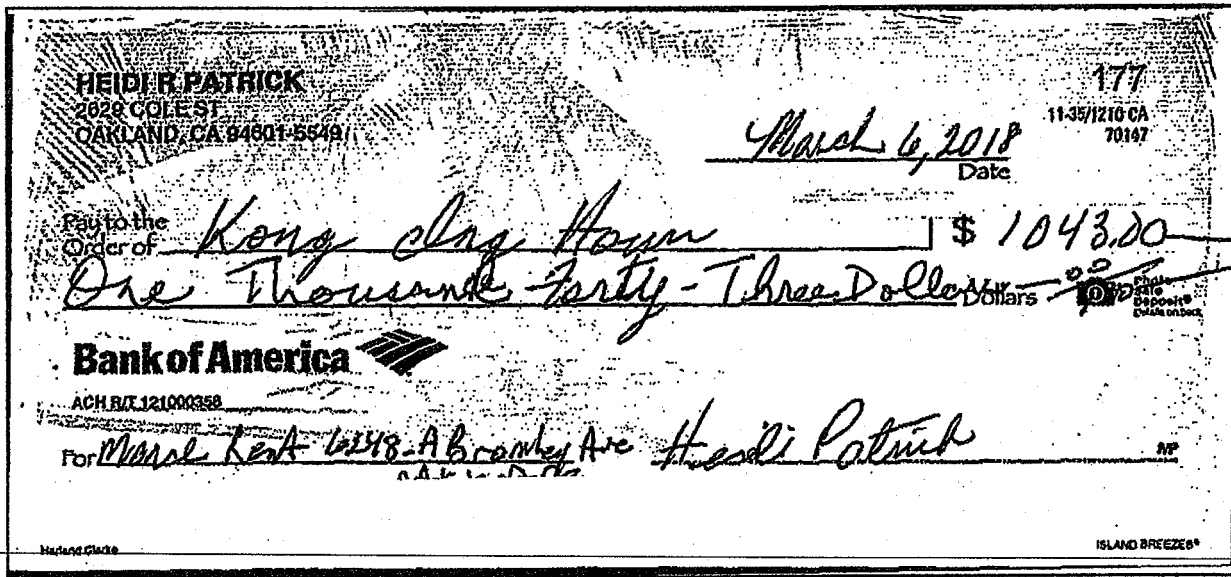 HEIDI R PATRICK
2629 COLE ST
OAKLAND, CA 94601-5549
177
11-35/1210 CA
70147
March 6, 2018
Date
Pay to the
Order of Kong Ing Houn $ 1043.00
One Thousand Forty-Three Dollars Dollars
Photo
Safe
Deposit®
Details on back
Bank of America
ACH R/T 121000358
For Rent 6348-A Bromley Ave Heidi Patrick MP
Harland Clarke
ISLAND BREEZES®